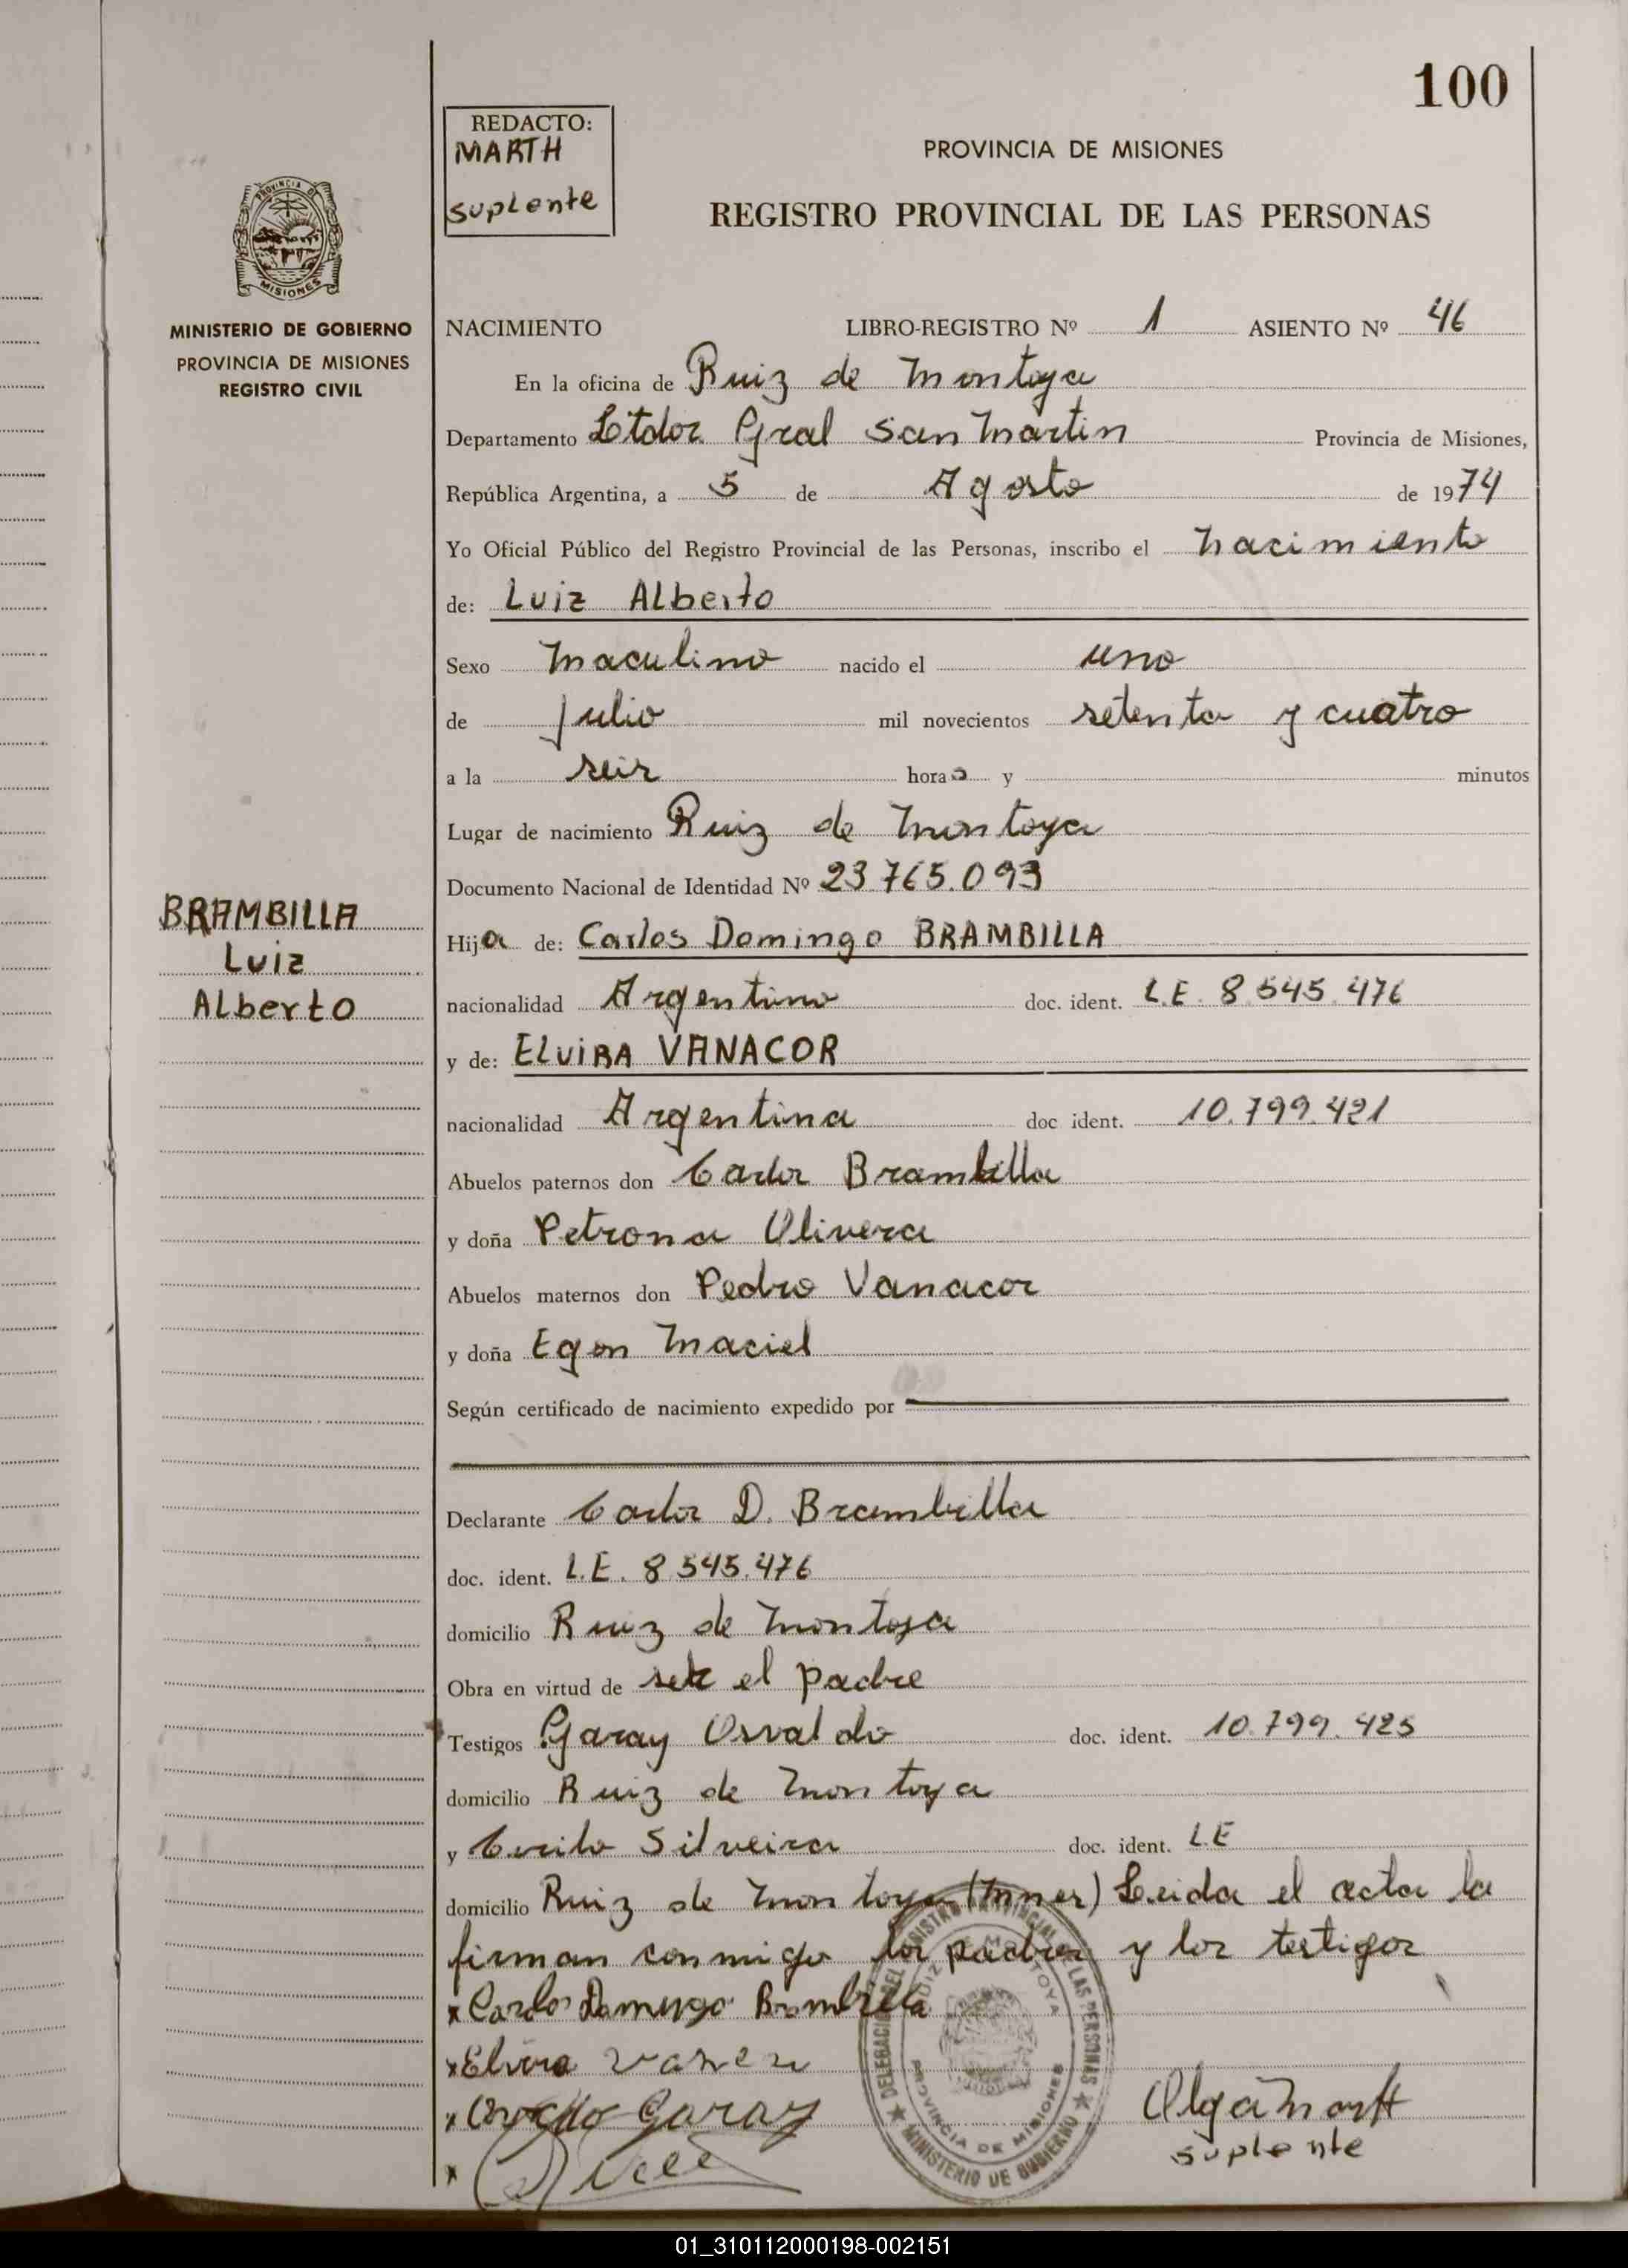 100
REDACTO:
MARTH
suplente
PROVINCIA DE MISIONES
REGISTRO PROVINCIAL DE LAS PERSONAS
PROVINCIA DE
MISIONES
MINISTERIO DE GOBIERNO
PROVINCIA DE MISIONES
REGISTRO CIVIL
BRAMBILLA
Luiz
Alberto
NACIMIENTO LIBRO-REGISTRO Nº 1 ASIENTO Nº 46
En la oficina de Ruiz de Montoya
Departamento Ltdor Gral San Martin Provincia de Misiones,
República Argentina, a 5 de Agosto de 1974
Yo Oficial Público del Registro Provincial de las Personas, inscribo el nacimiento
de: Luiz Alberto
Sexo Maculino nacido el uno
de julio mil novecientos setenta y cuatro
a la seis horas y minutos
Lugar de nacimiento Ruiz de Montoya
Documento Nacional de Identidad Nº 23765.093
Hija de: Carlos Domingo BRAMBILLA
nacionalidad Argentino doc. ident. L.E. 8.545.476
y de: ELVIRA VANACOR
nacionalidad Argentina doc ident. 10.799.421
Abuelos paternos don Carlos Brambilla
y doña Petrona Olivera
Abuelos maternos don Pedro Vanacor
y doña Egon Maciel
Según certificado de nacimiento expedido por
Declarante Carlos D. Brambilla
doc. ident. L.E. 8.545.476
domicilio Ruiz de Montoya
Obra en virtud de ser el padre
Testigos Garay Osvaldo doc. ident. 10.799.425
domicilio Ruiz de Montoya
y Silveira doc. ident. L.E
domicilio Ruiz de Montoya Leida el acta la
firman conmigo los padres y los testigos
x Carlos Domingo Brambilla
x Elvira
x Garay
x
Olga Marth
suplente
DELEGACION DEL REGISTRO PROVINCIAL DE LAS PERSONAS
RUIZ DE MONTOYA
PROVINCIA DE MISIONES
MINISTERIO DE GOBIERNO
01_310112000198-002151